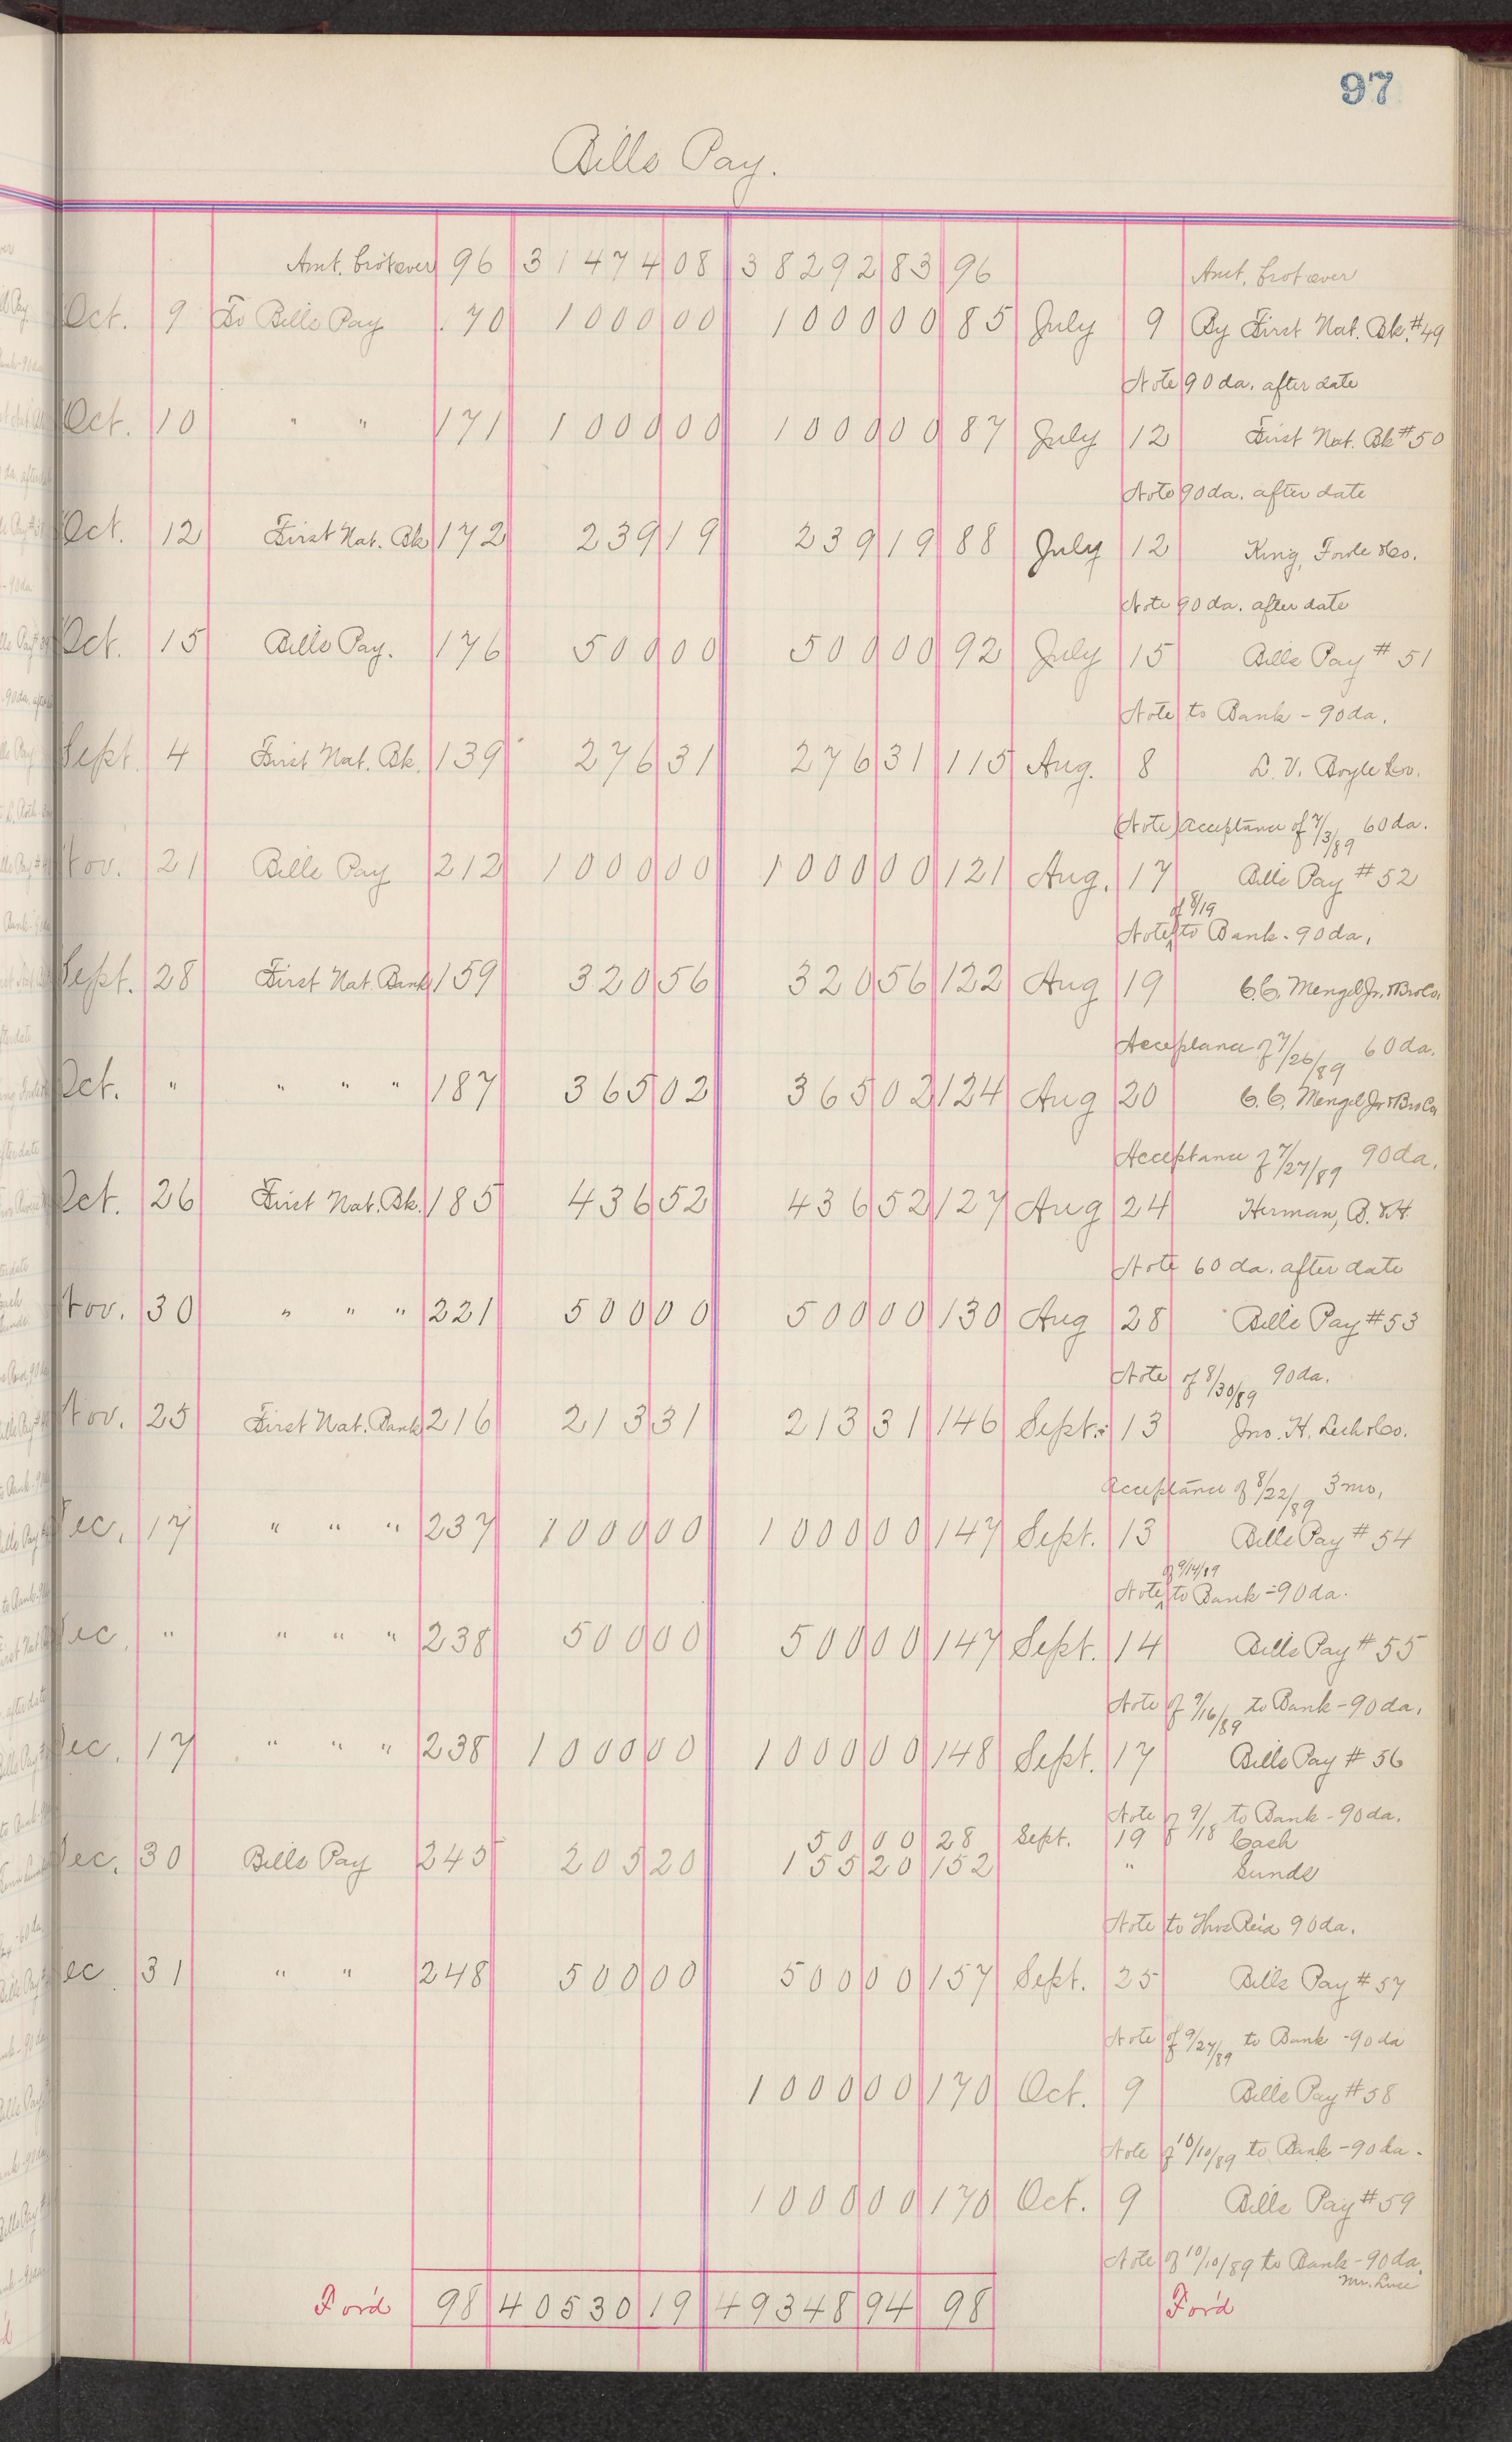 97
Bills Pay.
Amt. brot over 96 31474 08 38292 83 96 Amt. brot over
Oct. 9 To Bills Pay .70 1000 00 1000 00 85 July 9 By First Nat. Bk. #49
Note 90 da. after date
Oct. 10 " " 171 1000 00 1000 00 87 July 12 First Nat. Bk #50
Note 90 da. after date
Oct. 12 First Nat. Bk 172 239 19 239 19 88 July 12 King, Fowle & Co.
Note 90 da. after date
Oct. 15 Bills Pay. 176 500 00 500 00 92 July 15 Bills Pay # 51
Note to Bank - 90 da.
Sept. 4 First Nat. Bk. 139 276 31 276 31 115 Aug. 8 L. V. Boyle & Co.
Note Acceptance of 7/3/89 60 da.
Nov. 21 Bills Pay 212 1000 00 1000 00 121 Aug. 17 Bills Pay # 52
of 8/19
Note to Bank - 90 da.
Sept. 28 First Nat. Bank 159 320 56 320 56 122 Aug 19 C.C. Mengel Jr. & Bro Co.
Acceptance of 7/26/89 60 da.
Oct. " " " " 187 365 02 365 02 124 Aug 20 C.C. Mengel Jr & Bro Co
Acceptance of 7/27/89 90 da.
Oct. 26 First Nat. Bk. 185 436 52 436 52 127 Aug 24 Herman, B. & H.
Note 60 da. after date
Nov. 30 " " " 221 500 00 500 00 130 Aug 28 Bills Pay #53
Note of 8/30/89 90 da.
Nov. 25 First Nat. Bank 216 213 31 213 31 146 Sept. 13 Jno. H. Lech & Co.
Acceptance of 8/22/89 3 mo.
Dec. 17 " " " 237 1000 00 1000 00 147 Sept. 13 Bills Pay # 54
of 9/14/89
Note to Bank - 90 da.
Dec. " " " " 238 500 00 500 00 147 Sept. 14 Bills Pay # 55
Note of 9/16/89 to Bank - 90 da.
Dec. 17 " " " 238 1000 00 1000 00 148 Sept. 17 Bills Pay # 56
Note of 9/18 to Bank - 90 da.
50 00 28 Sept. 19 Cash
Dec. 30 Bills Pay 245 205 20 155 20 152 " Sunds
Note to Thos Reid 90 da.
Dec. 31 " " 248 500 00 500 00 157 Sept. 25 Bills Pay # 57
Note of 9/27/89 to Bank - 90 da
1000 00 170 Oct. 9 Bills Pay # 58
Note of 10/10/89 to Bank - 90 da.
1000 00 170 Oct. 9 Bills Pay # 59
Note of 10/10/89 to Bank - 90 da.
For'd 98 40530 19 49348 94 98 For'd